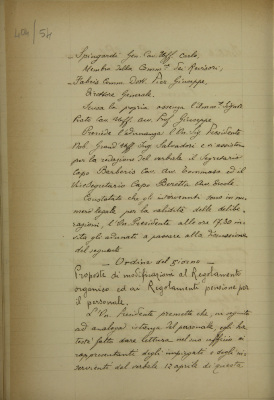 404/54
Spingardi Gen. Cav. Uff. Carlo,
Membro della Comm.e dei Revisori;
Fabris Comm. Dott. Pier Giuseppe,
Direttore Generale.
Scusa la propria assenza l'Onor.
Cav. Uff. Avv. Prof. Giuseppe.
Presiede l'adunanza l'On. Sig. Presidente
Grand'Uff. Ing. Salvadori e vi assiste
per la redazione del verbale il Segretario
Capo Barberis Cav. Avv. Tommaso ed il
Vicesegretario Capo Beretta
Constatato che gl'intervenuti sono in nu-
mero legale per la validità delle delibe-
razioni, l'On. Presidente alle ore 17.30 in-
vita gli adunati a passare alla discussione
del seguente
Ordine del giorno
Proposte di modificazioni al Regolamento
organico ed ai Regolamenti pensione per
il personale.
L'On. Presidente premette che, in seguito
ad analoga istanza del personale, egli ha
fatto dare lettura, nel suo ufficio ai
rappresentanti degli impiegati e degli in-
servienti del verbale 12 aprile di questo